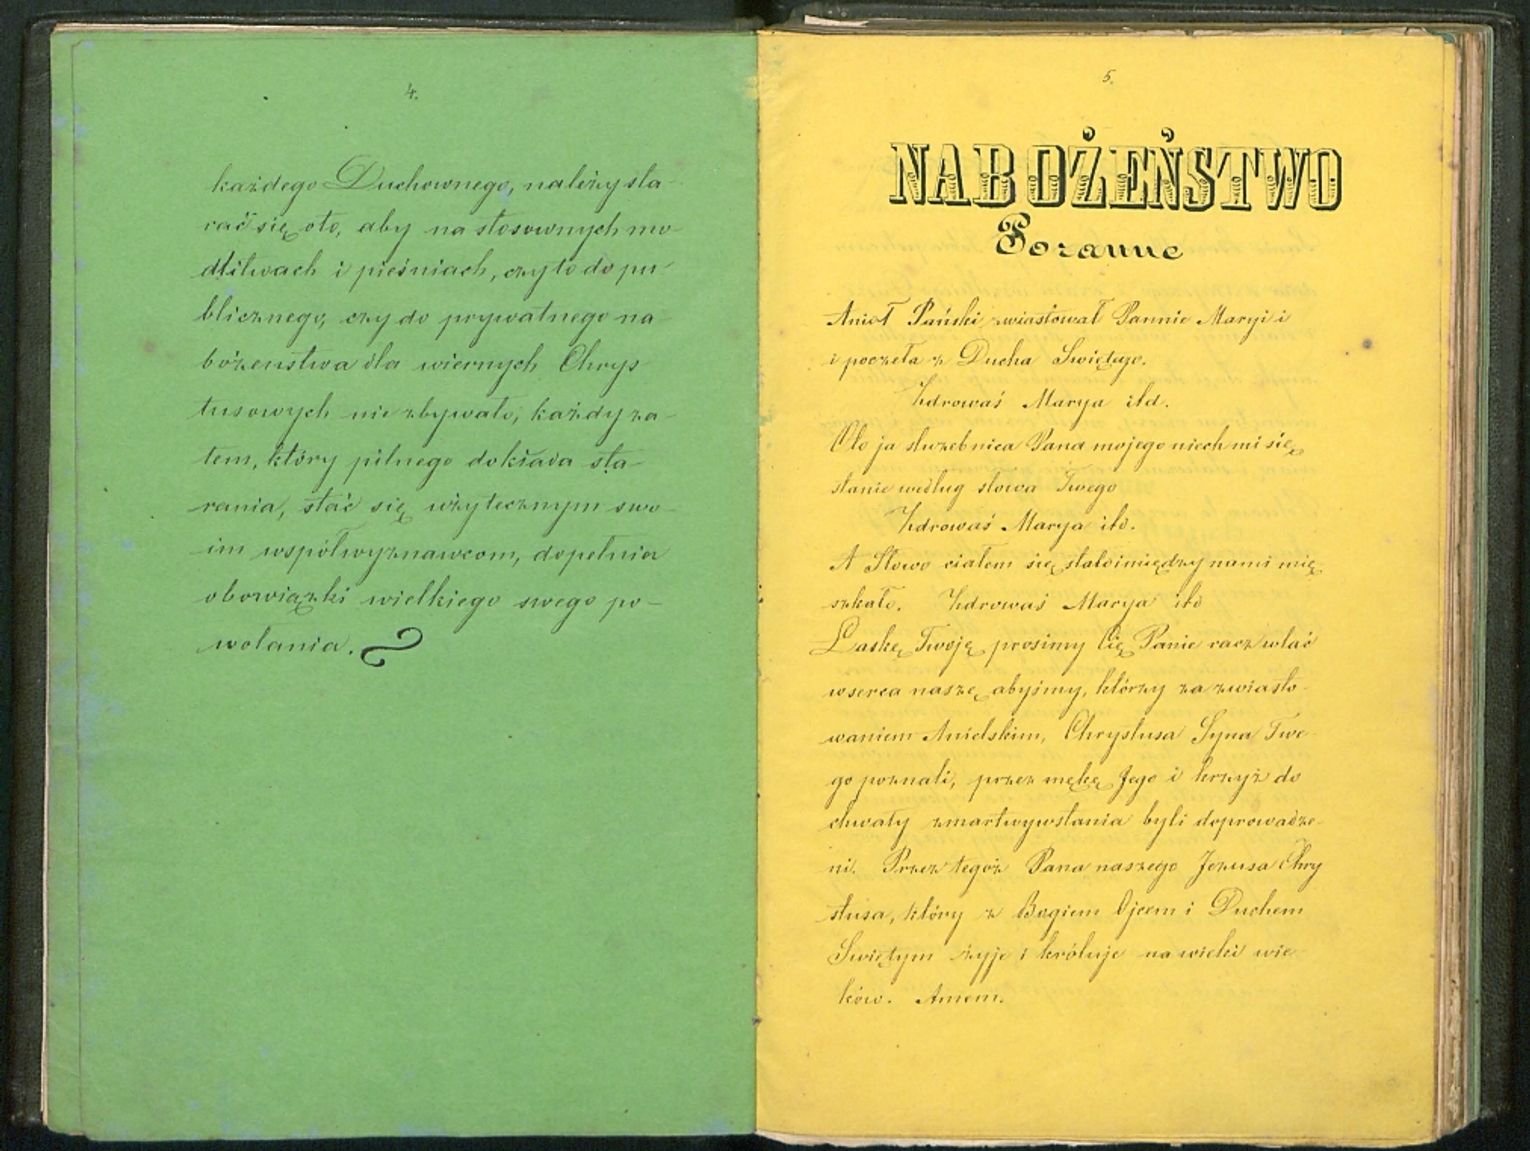 4.
każdego Duchownego, należy sta-
rać się oto, aby na stosownych mo-
dlitwach i pieśniach, czy to do pu-
blicznego, czy do prywatnego na-
bożenstwa dla wiernych Chrys
tusowych nie zbywało, każdy za-
tem, który pilnego dokłada sta-
rania, stać się użytecznym swo-
im współwyznawcom, dopełnia
obowiązki wielkiego swego po-
wołania.
5.
NABOŻEŃSTWO
Poranne
Anioł Pański zwiastował Pannie Maryi i
i poczeła z Ducha Swiętego.
Zdrowaś Marya itd.
Oto ja słuzebnica Pana mojego niech mi się
stanie według słowa Twego
Zdrowaś Marya itd.
A Słowo ciałem się stało i między nami mię
szkało. Zdrowaś Marya itd
Łaskę Twoję prosimy Cię Panie racz wlać
w serca nasze, abyśmy, którzy za zwiasto-
waniem Anielskim, Chrystusa Syna Twe-
go poznali, przez mękę Jego i krzyż do
chwały zmartwywstania byli doprowadze-
ni. Przez tegoż Pana naszego Jezusa Chry
stusa, który z Bogiem Ojcem i Duchem
Swiętym żyje i króluje na wieki wie-
ków. Amem.